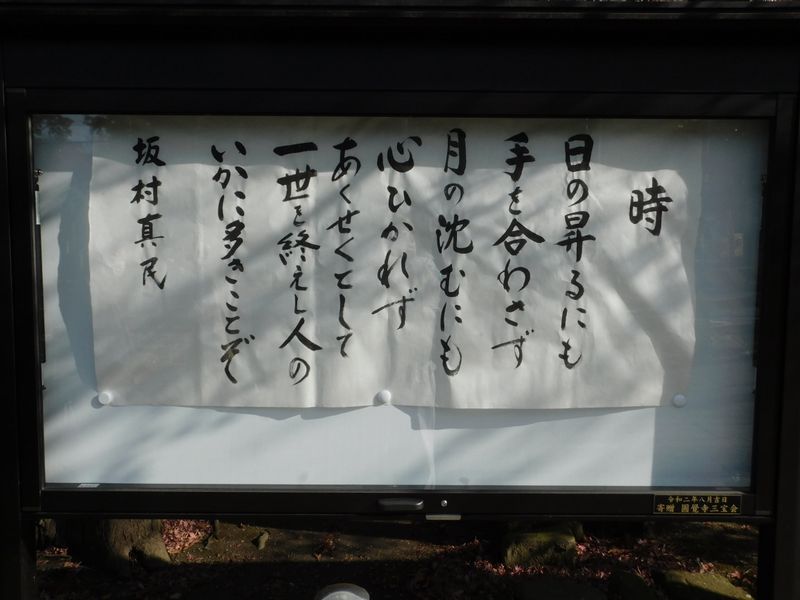 時
日の昇るにも
手を合わさず
月の沈むにも
心ひかれず
あくせくとして
一世を終えし人の
いかに多きことぞ
坂村真民
令和二年八月吉日
寄贈 圓覺寺三宝会